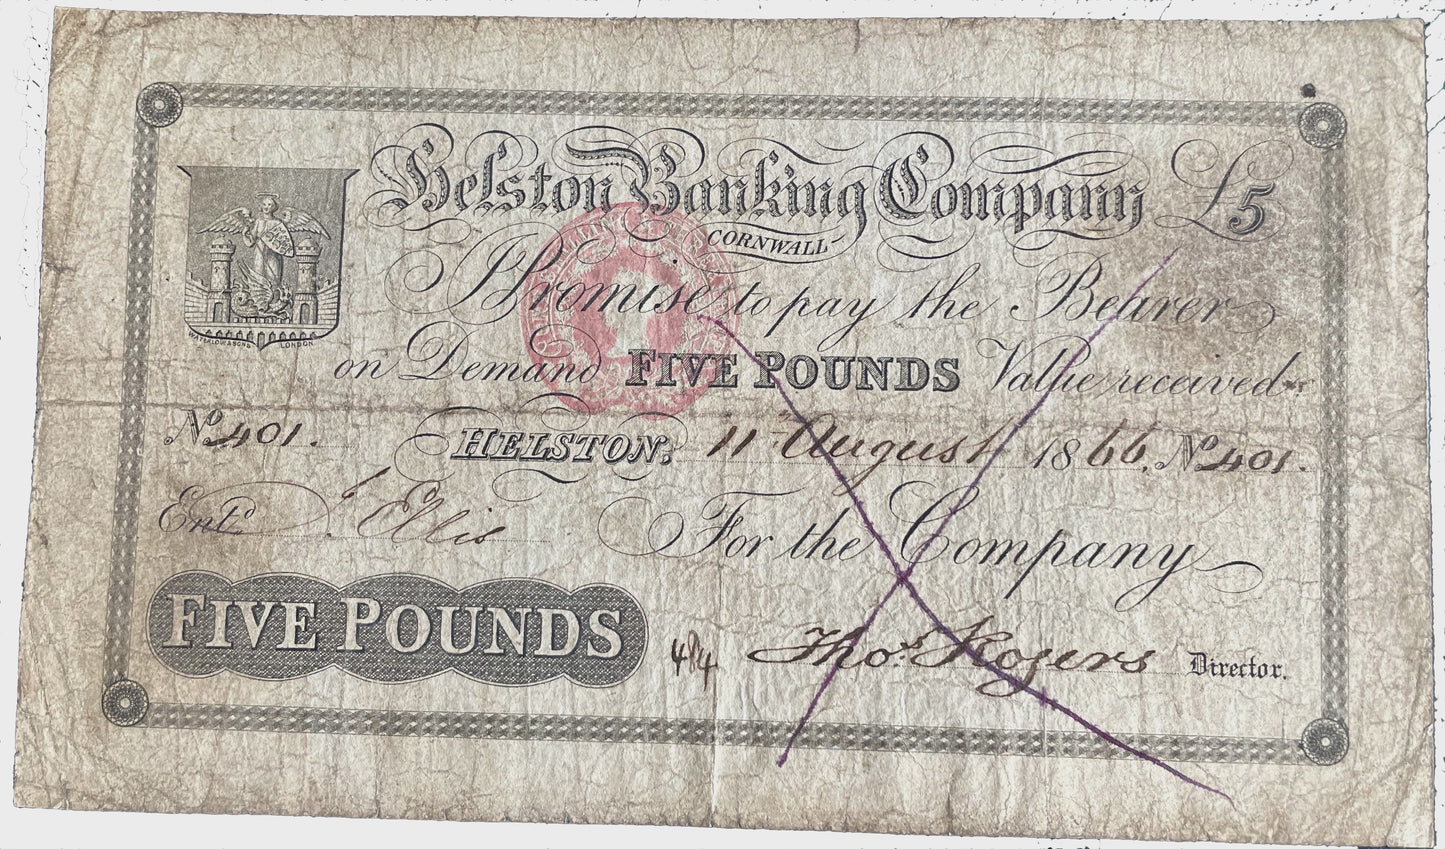 Helston Banking Company £5
CORNWALL
WATERLOW & SONS LONDON
I Promise to pay the Bearer
on Demand FIVE POUNDS Value received
No. 401. HELSTON, 11th August 1866. No. 401.
Entd. Ellis
For the Company
FIVE POUNDS
484 Thos. Rogers Director.